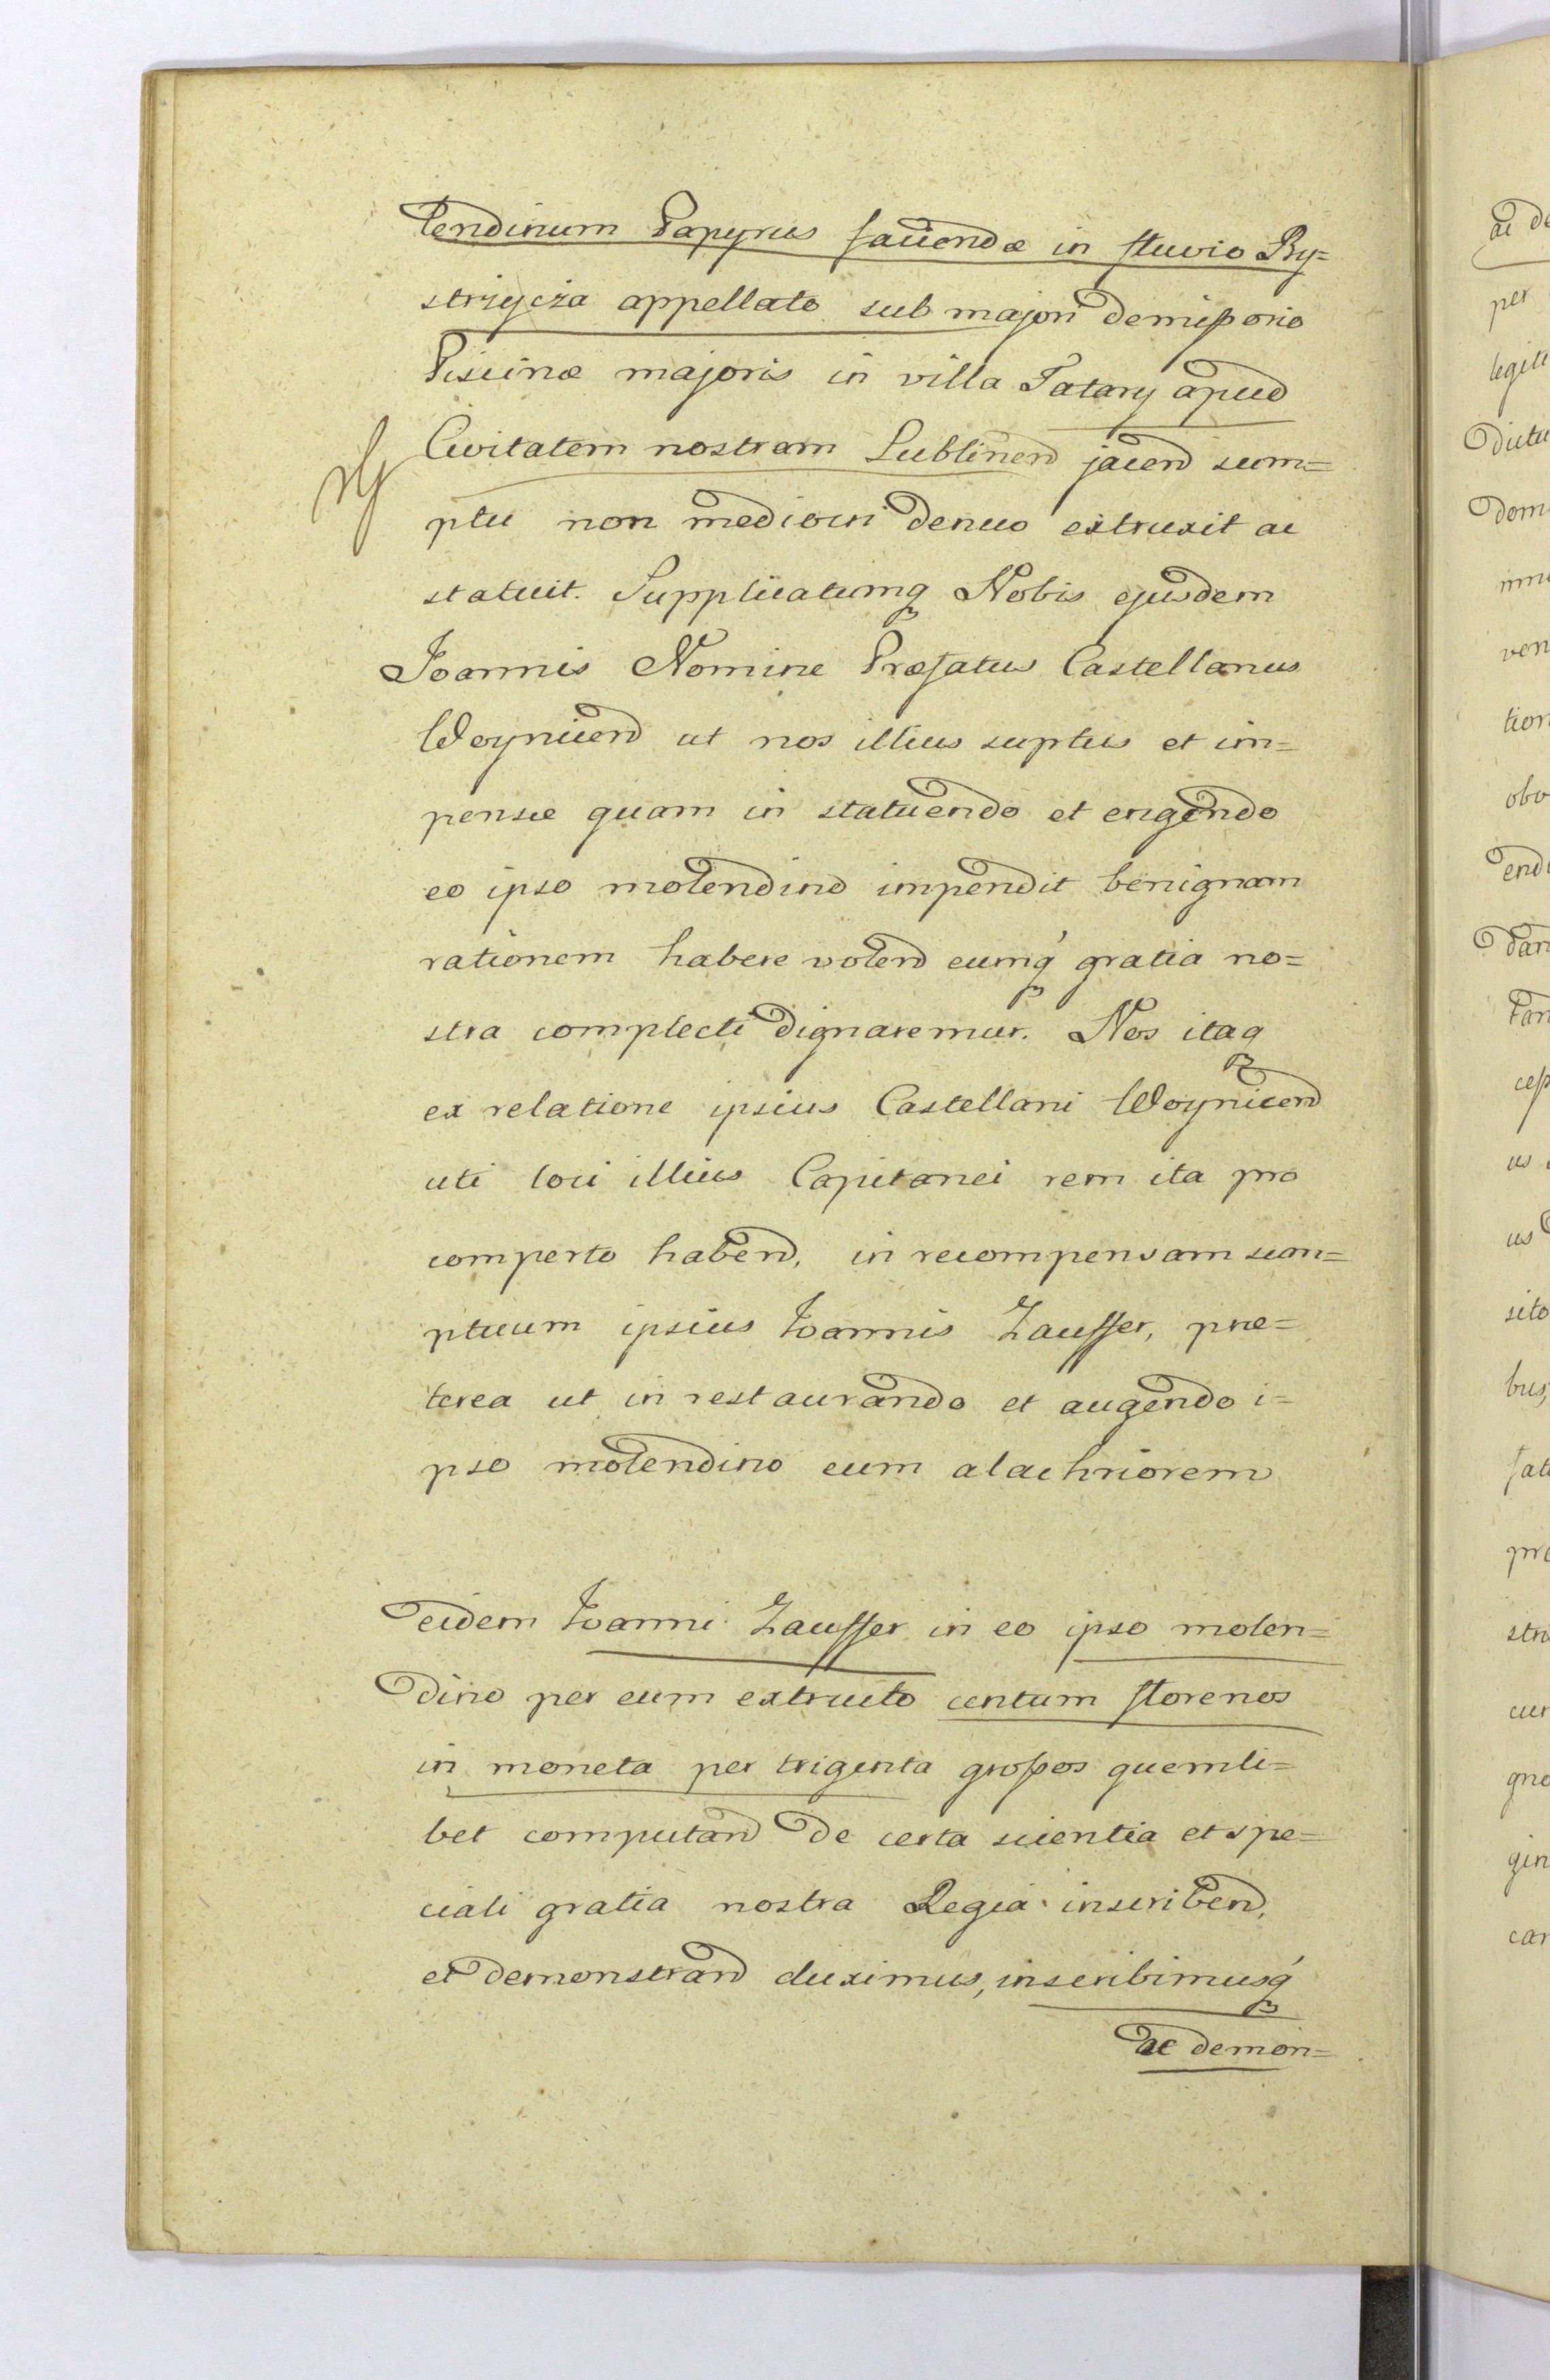 lendinum Papyrus faciendæ in fluvio By=
strzycza appellato sub majori demissorio
Piscinæ majoris in villa Tatary apud
Civitatem nostram Lublinen jacen sum=
ptu non mediocri denuo extruxit ac
statuit. Supplicatumq Nobis ejusdem
Joannis Nomine Præfatus Castellanus
Woynicen ut nos illius suptus et im=
pensæ quam in statuendo et erigendo
eo ipso molendino impendit benignam
rationem habere volen eumq́ gratia no=
stra complecti dignaremur. Nos itaq
ex relatione ipsius Castellani Woynicen
uti loci illius Capitanei rem ita pro
comperto haben, in recompensam sum=
ptuum ipsius Joannis Zausser, præ=
terea ut in restaurando et augendo i=
pso molendino eum alachriorem
eidem Joanni Zausser in eo ipso molen=
dino per eum extructo centum florenos
in moneta per triginta grossos quemli=
bet computan de certa scientia et spe=
ciali gratia nostra Regia inscriben,
et demonstran duximus, inscribimusq́
ac demon=